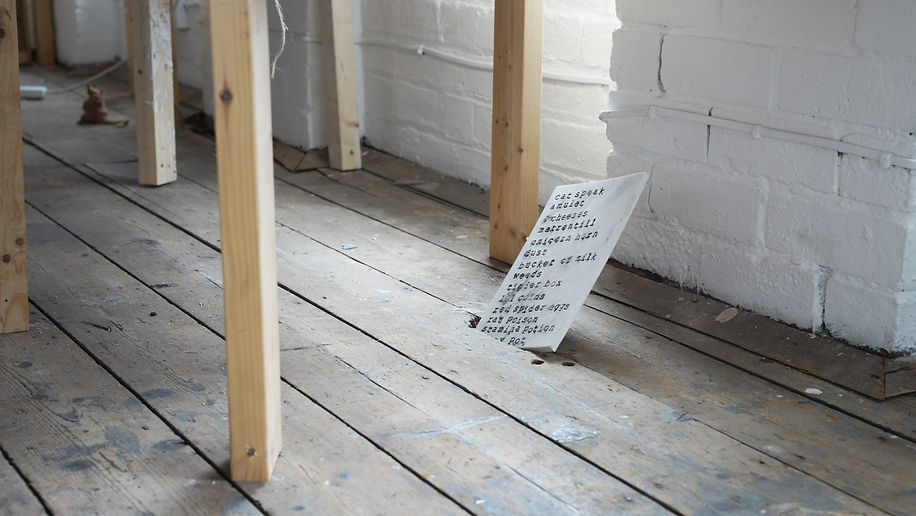 cat speak
amulet
2 cheeses
matrentill
unicorn horn
dust
bucket of milk
weeds
tinder box
101 coins
red spider eggs
rat poison
stamina potion
pot